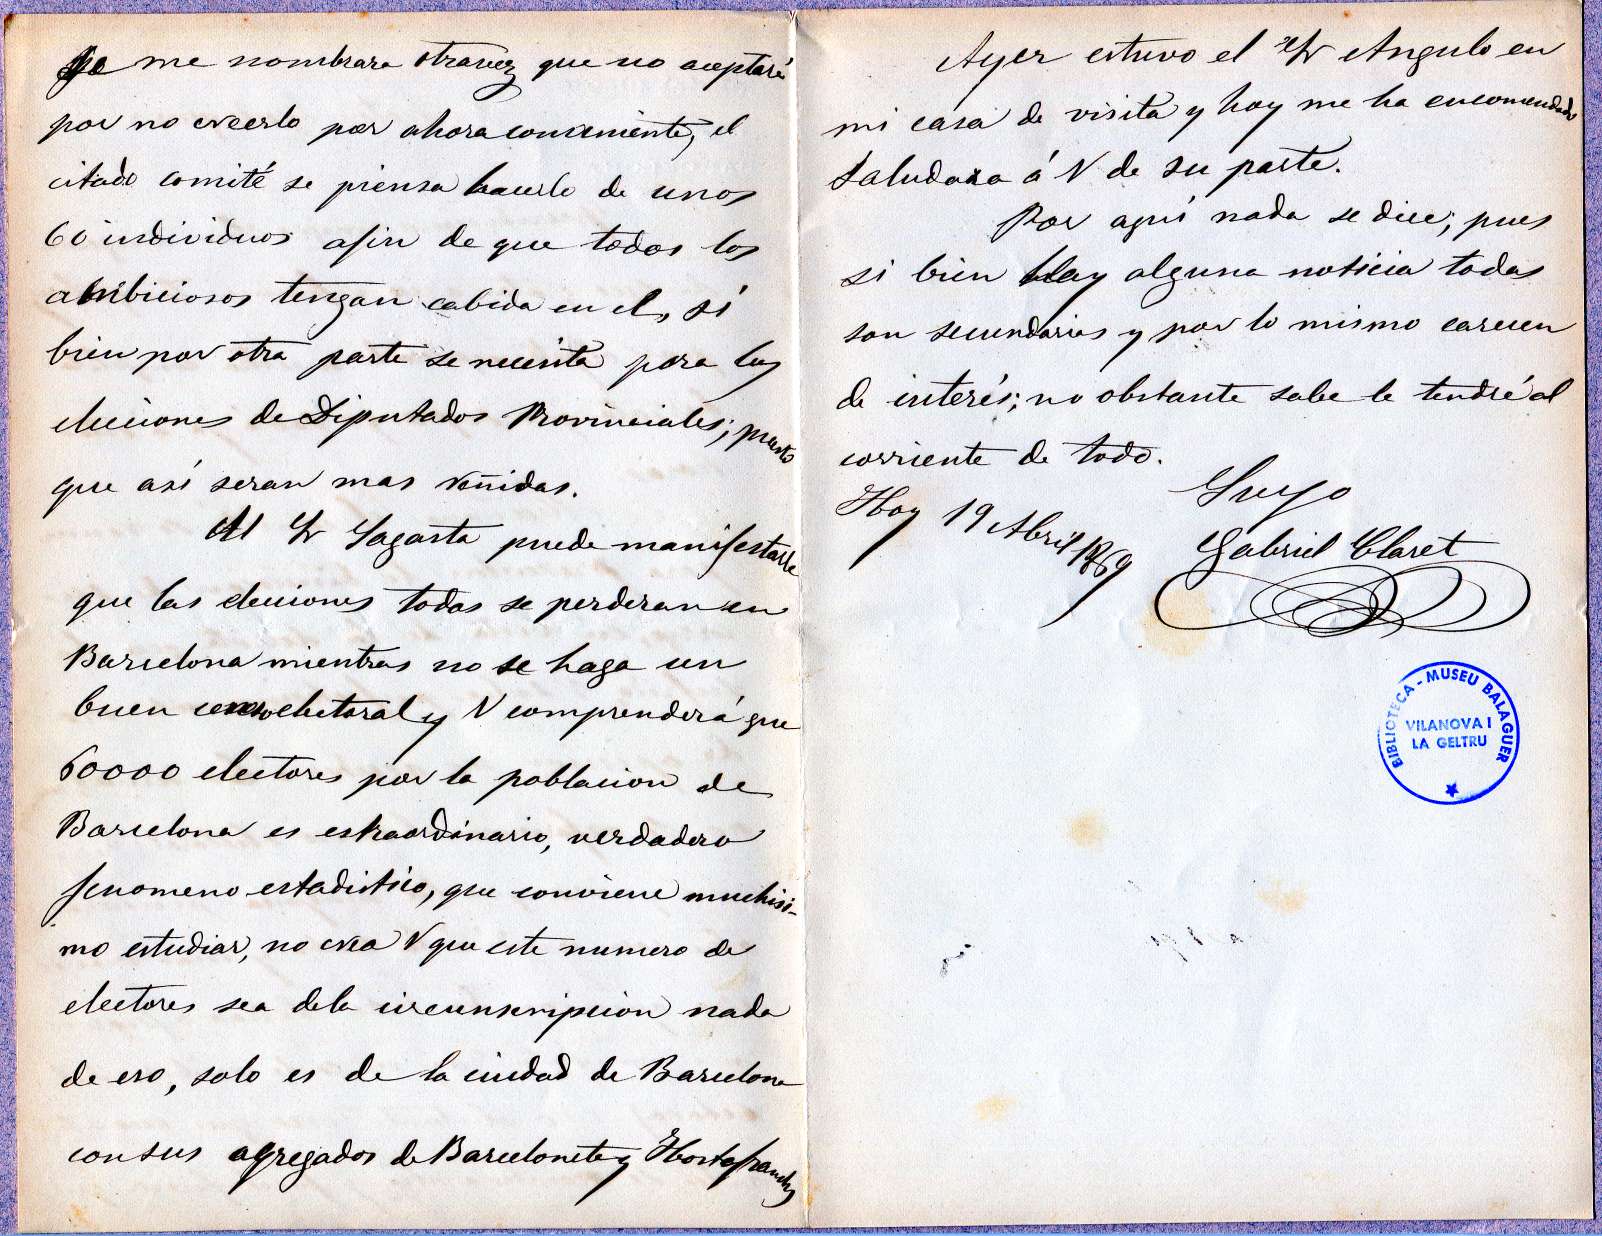 se me nombrara otravez que no aceptaré
por no creerlo por ahora conveniente, el
citado comité se piensa hacerlo de unos
60 individuos afin de que todos los
ambiciosos tengan cabida en el, si
bien por otra parte se necesita para las
elecciones de Diputados Provinciales; puesto
que así seran mas reñidas.
Al Sr Sagasta puede manifestarle
que las elecciones todas se perderan en
Barcelona mientras no se haga un
buen censo electoral y V comprenderá que
60000 electores por la poblacion de
Barcelona es estraordinario, verdadero
fenomeno estadistico, que conviene muchisi-
mo estudiar, no crea V que este numero de
electores sea dela circunscripcion nada
de eso, solo es de la ciudad de Barcelona
con sus agregados de Barceloneta y Hostafranchs
Ayer estuvo el Sr Angulo en
mi casa de visita y hoy me ha encomendado
saludara á V de su parte.
Por aquí nada se dice; pues
si bien hay alguna noticia todas
son secundarias y por lo mismo carecen
de interés; no obstante sabe le tendré al
corriente de todo.
Suyo
Hoy 19 Abril 1869
Gabriel Claret
BIBLIOTECA - MUSEU BALAGUER
VILANOVA I
LA GELTRU